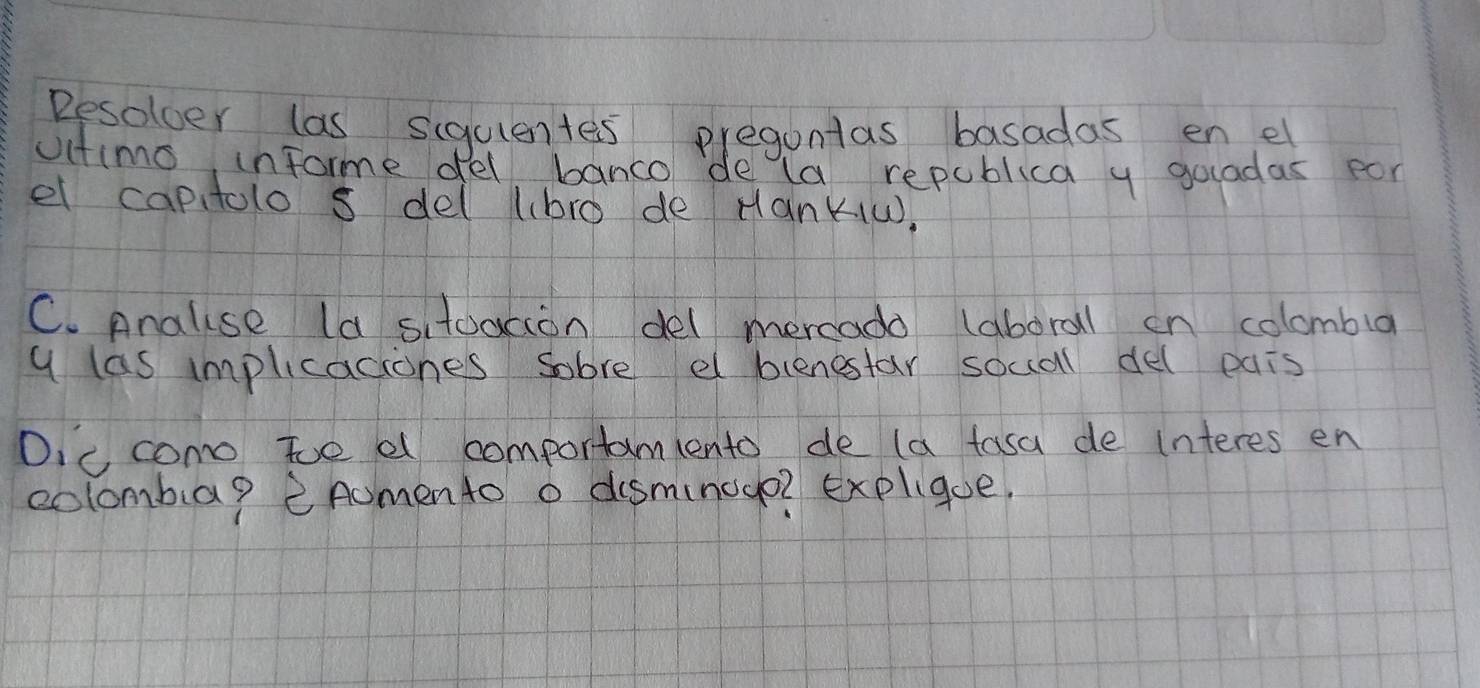 Resolver las siguientes preguntas basadas en el
ultimo informe del banco de la republica y guiadas por
el capitulo 5 del libro de Mankiw.
C. Analise la situación del mercado laborall en colombia
y las implicaciones sobre el bienestar sociall del país
D. ¿ como fue el comportamiento de la tasa de interes en
colombia? ¿ Aumento o disminuyo? Explique.